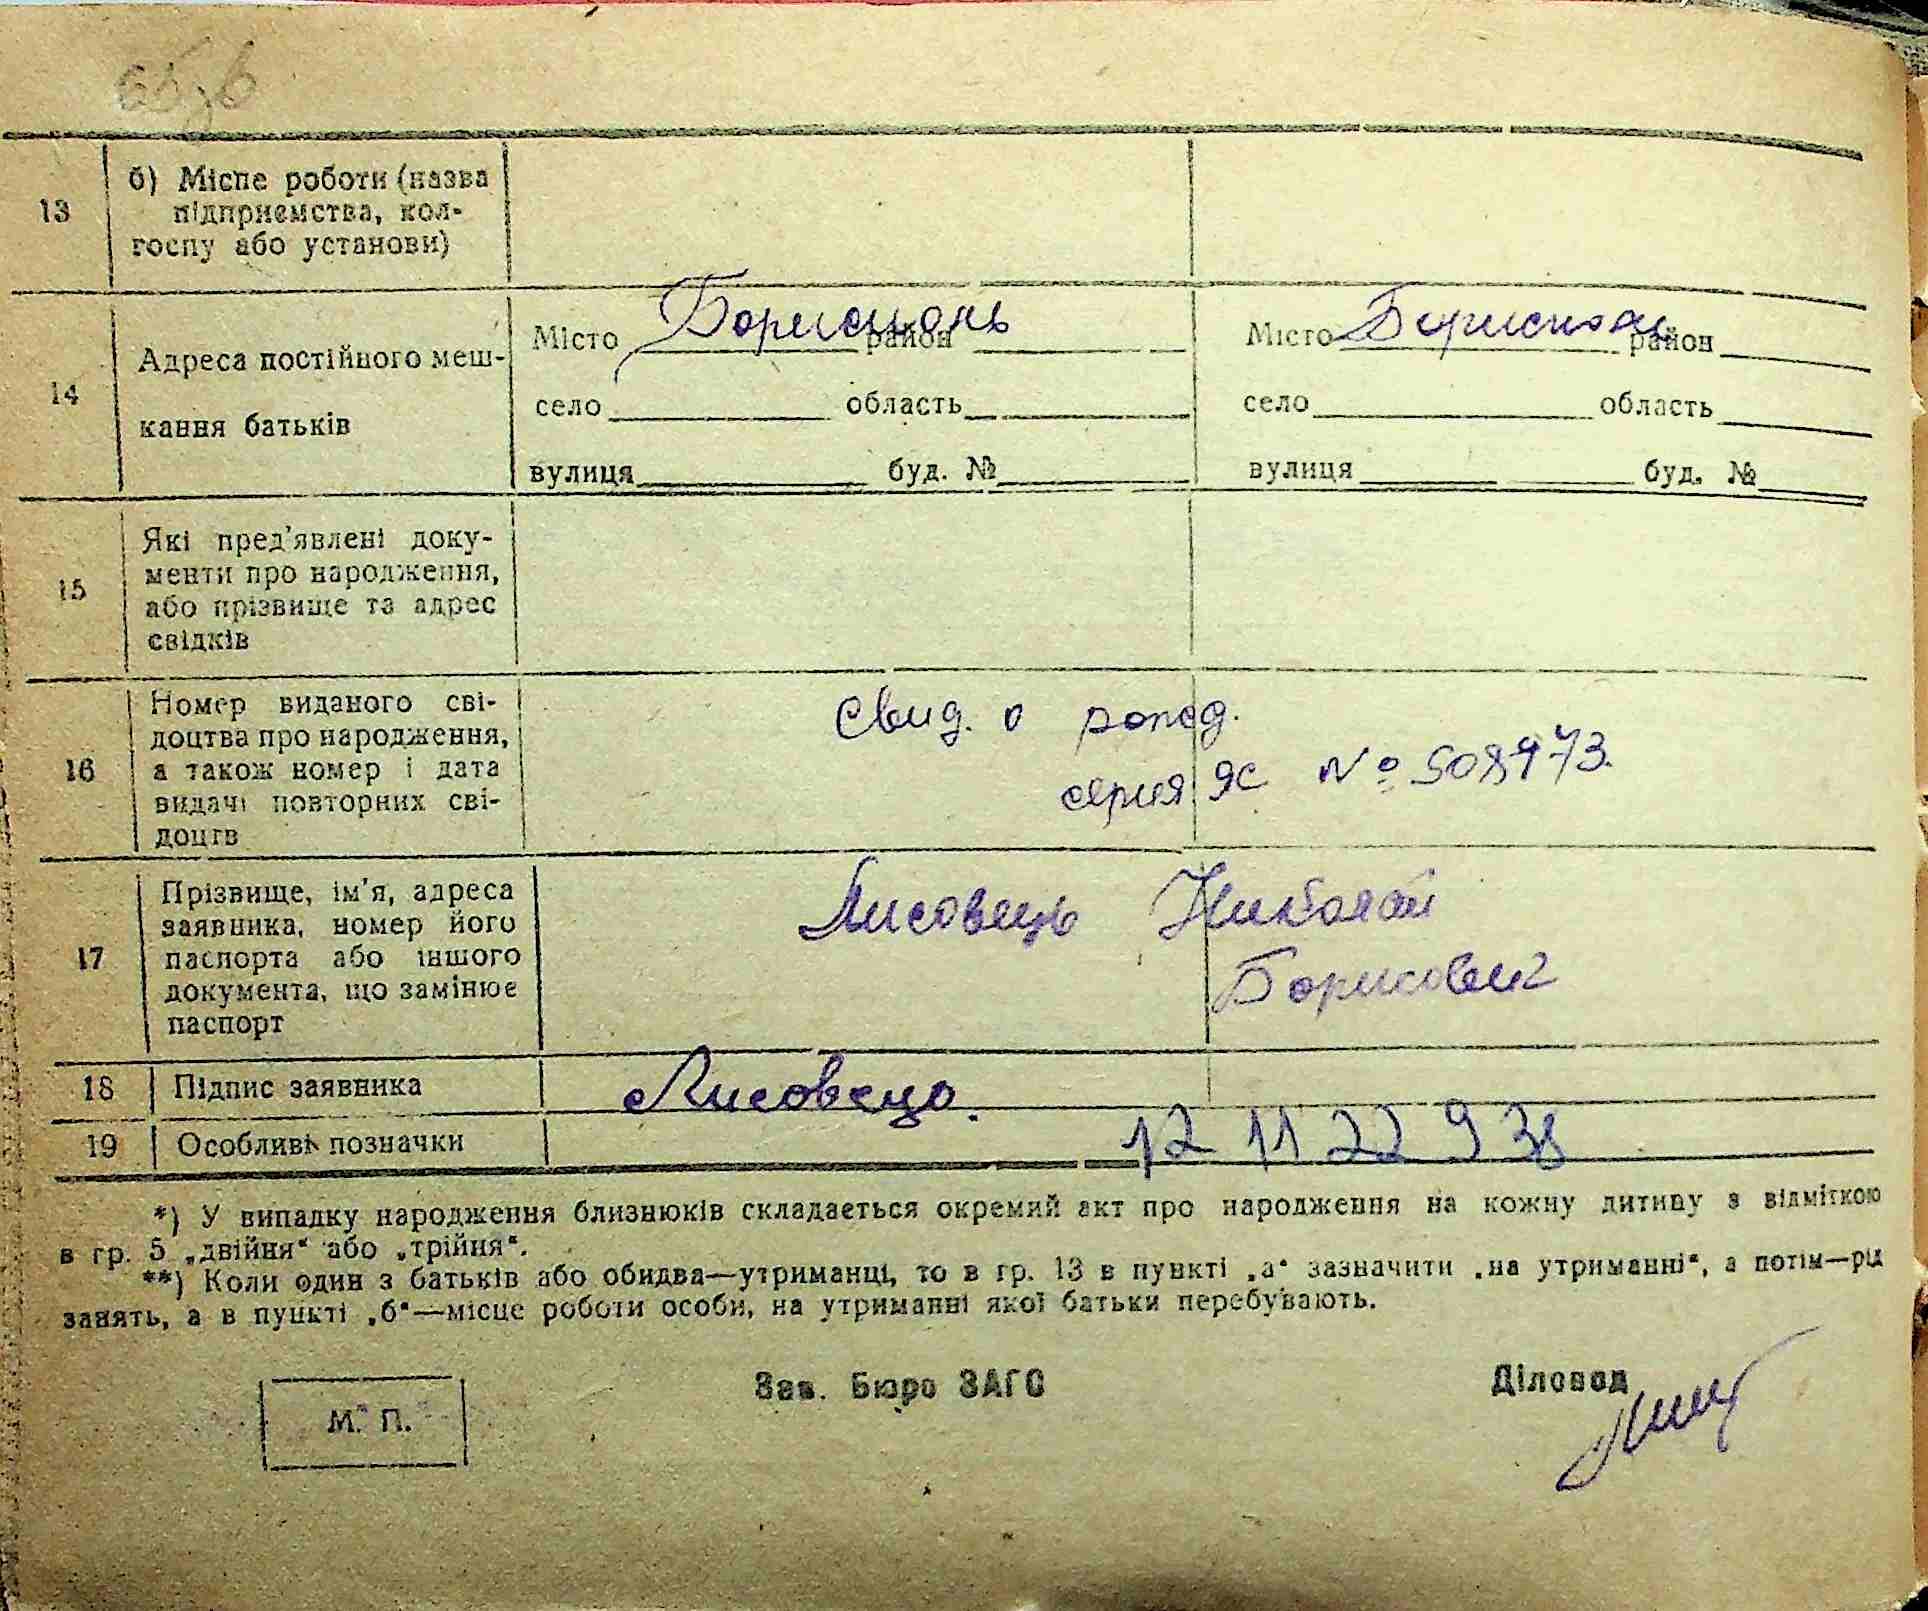 13
б) Місце роботи (назва
підприємства, кол-
госпу або установи)
14
Адреса постійного меш-
кання батьків
Місто Бориспонь район
село область
вулиця буд. №
Місто район
село область
вулиця буд. №
15
Які пред'явлені доку-
менти про народження,
або прізвище та адрес
свідків
16
Номер виданого сві-
доцтва про народження,
а також номер і дата
видачі повторних сві-
доцтв
Свид. о рожд.
серия ЯС №
17
Прізвище, ім'я, адреса
заявника, номер його
паспорта або іншого
документа, що замінює
паспорт
Лисовець Николай
Борисович
18
Підпис заявника
Лисовець.
19
Особливі позначки
12 11 22 9 38
*) У випадку народження близнюків складається окремий акт про народження на кожну дитину з відміткою
в гр. 5 „двійня“ або „трійня“.
**) Коли один з батьків або обидва—утриманці, то в гр. 13 в пункті „а“ зазначити „на утриманні“, а потім—рід
занять, а в пункті „б“—місце роботи особи, на утриманні якої батьки перебувають.
М. П.
Зав. Бюро ЗАГС
Діловод